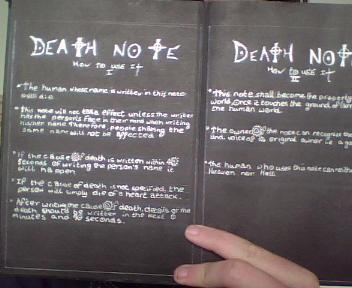 DEATH NOTE
HOW TO USE It
I
• The human whose name is written in this note
will die.
• This note will not take effect unless the writer
has the person's face in their mind when writing
his/her name. Therefore, people sharing the
same name will not be affected
• If the cause of death is written within 40
seconds of writing the person's name it
will happen
• If the cause of death is not specified, the
person will simply die of a heart attack.
• After writing the cause of death, details of the
death should be written in the next 6
minutes and 40 seconds.
DEATH NOT
HOW TO USE It
II
• This note shall become the property
world, once it touches the ground of
the human world.
• The owner of the note can recognise the
and voice of its original owner i.e a go
• The human who uses this note can
Heaven nor Hell.